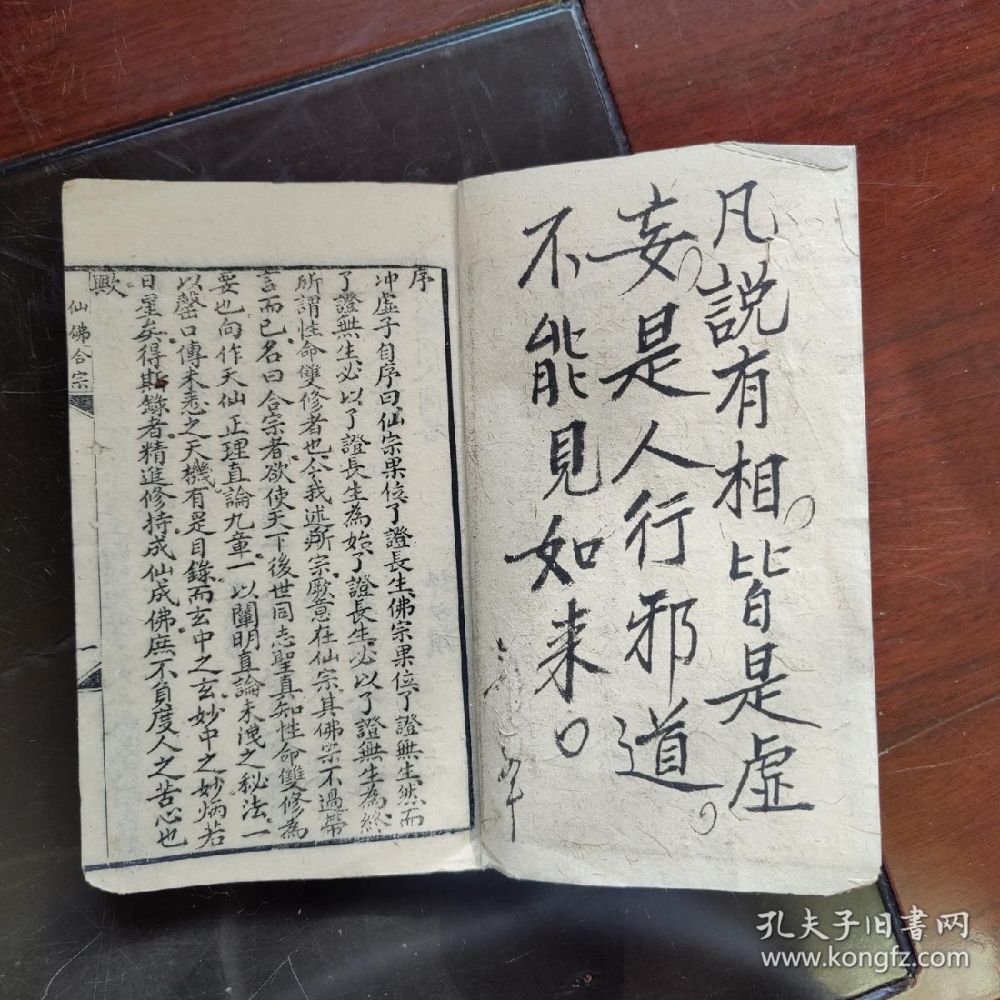 凡説有相。皆是虛
妄。是人行邪道。
不能見如来。
序
冲虛子自序曰仙宗果位了證長生佛宗果位了證無生然而
了證無生必以了證長生為始了證長生必以了證無生為終
所謂性命雙修者也今我述所宗厥意在仙宗其佛宗不過帶
言而已名曰合宗者欲使天下後世同志聖真知性命雙修為
要也向作天仙正理直論九章一以闡明直論未洩之秘法一
以罄口傳未悉之天機有是目錄而玄中之玄妙中之妙炳若
日星矣得斯錄者精進修持成仙成佛庶不負度人之苦心也
歟
仙佛合宗
一
孔夫子旧书网
www.kongfz.com